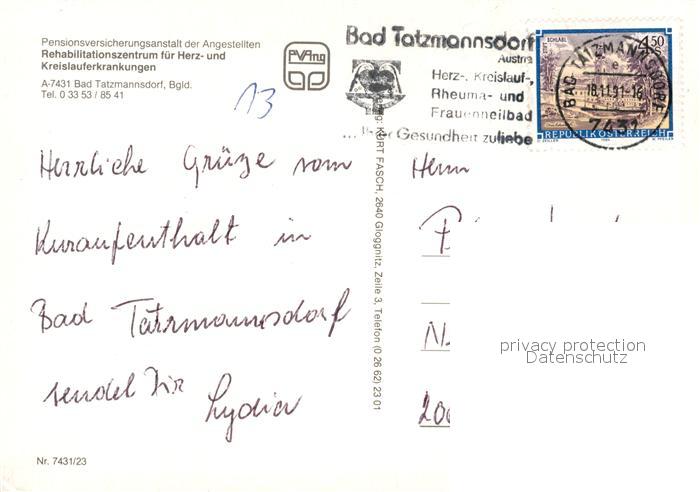 Pensionsversicherungsanstalt der Angestellten
Rehabilitationszentrum für Herz- und
Kreislauferkrankungen
A-7431 Bad Tatzmannsdorf, Bgld.
Tel. 0 33 53 / 85 41
PVAng
13
Bad Tatzmannsdorf
Austria
Herz-, Kreislauf-,
Rheuma- und
Frauenheilbad
... Ihrer Gesundheit zuliebe
STIFT SCHLÄGL
4.50
S
REPUBLIK ÖSTERREICH
BAD TATZMANNSDORF
e
18.11.91-16
7432
Herrliche Grüße vom
Kuraufenthalt in
Bad Tatzmannsdorf
sendet Dir
Lydia
Herrn
F
N.
200
KURT FASCH, 2640 Gloggnitz, Zeile 3, Telefon (0 26 62) 23 01
privacy protection
Datenschutz
Nr. 7431/23